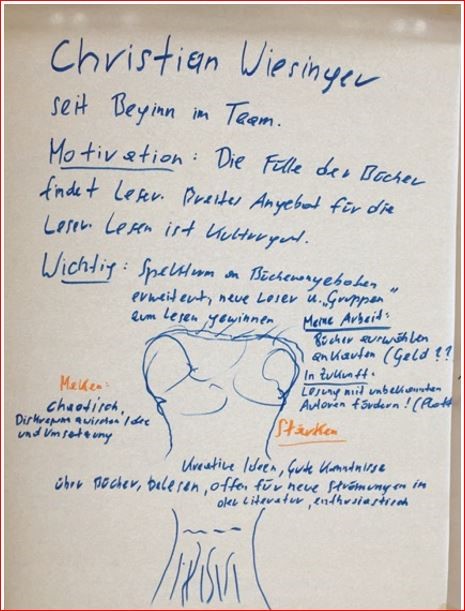 Christian Wiesinger
seit Beginn im Team.
Motivation: Die Fülle der Bücher
findet Leser. Breites Angebot für die
Leser. Lesen ist Kulturgut.
Wichtig: Spektrum an Büchenangeboten
erweitert, neue Leser u. "Gruppen"
zum Lesen gewinnen
Meine Arbeit:
Bücher auswählen
ankaufen (Geld??
In Zukunft:
Lesung mit unbekannten
Autoren fördern! (Platt
Macken:
chaotisch,
Diskrepanz zwischen Idee
und Umsetzung
Stärken
Kreative Ideen, Gute Kenntnisse
über Bücher, belesen, offen für neue Strömungen in
der Literatur, enthusiastisch